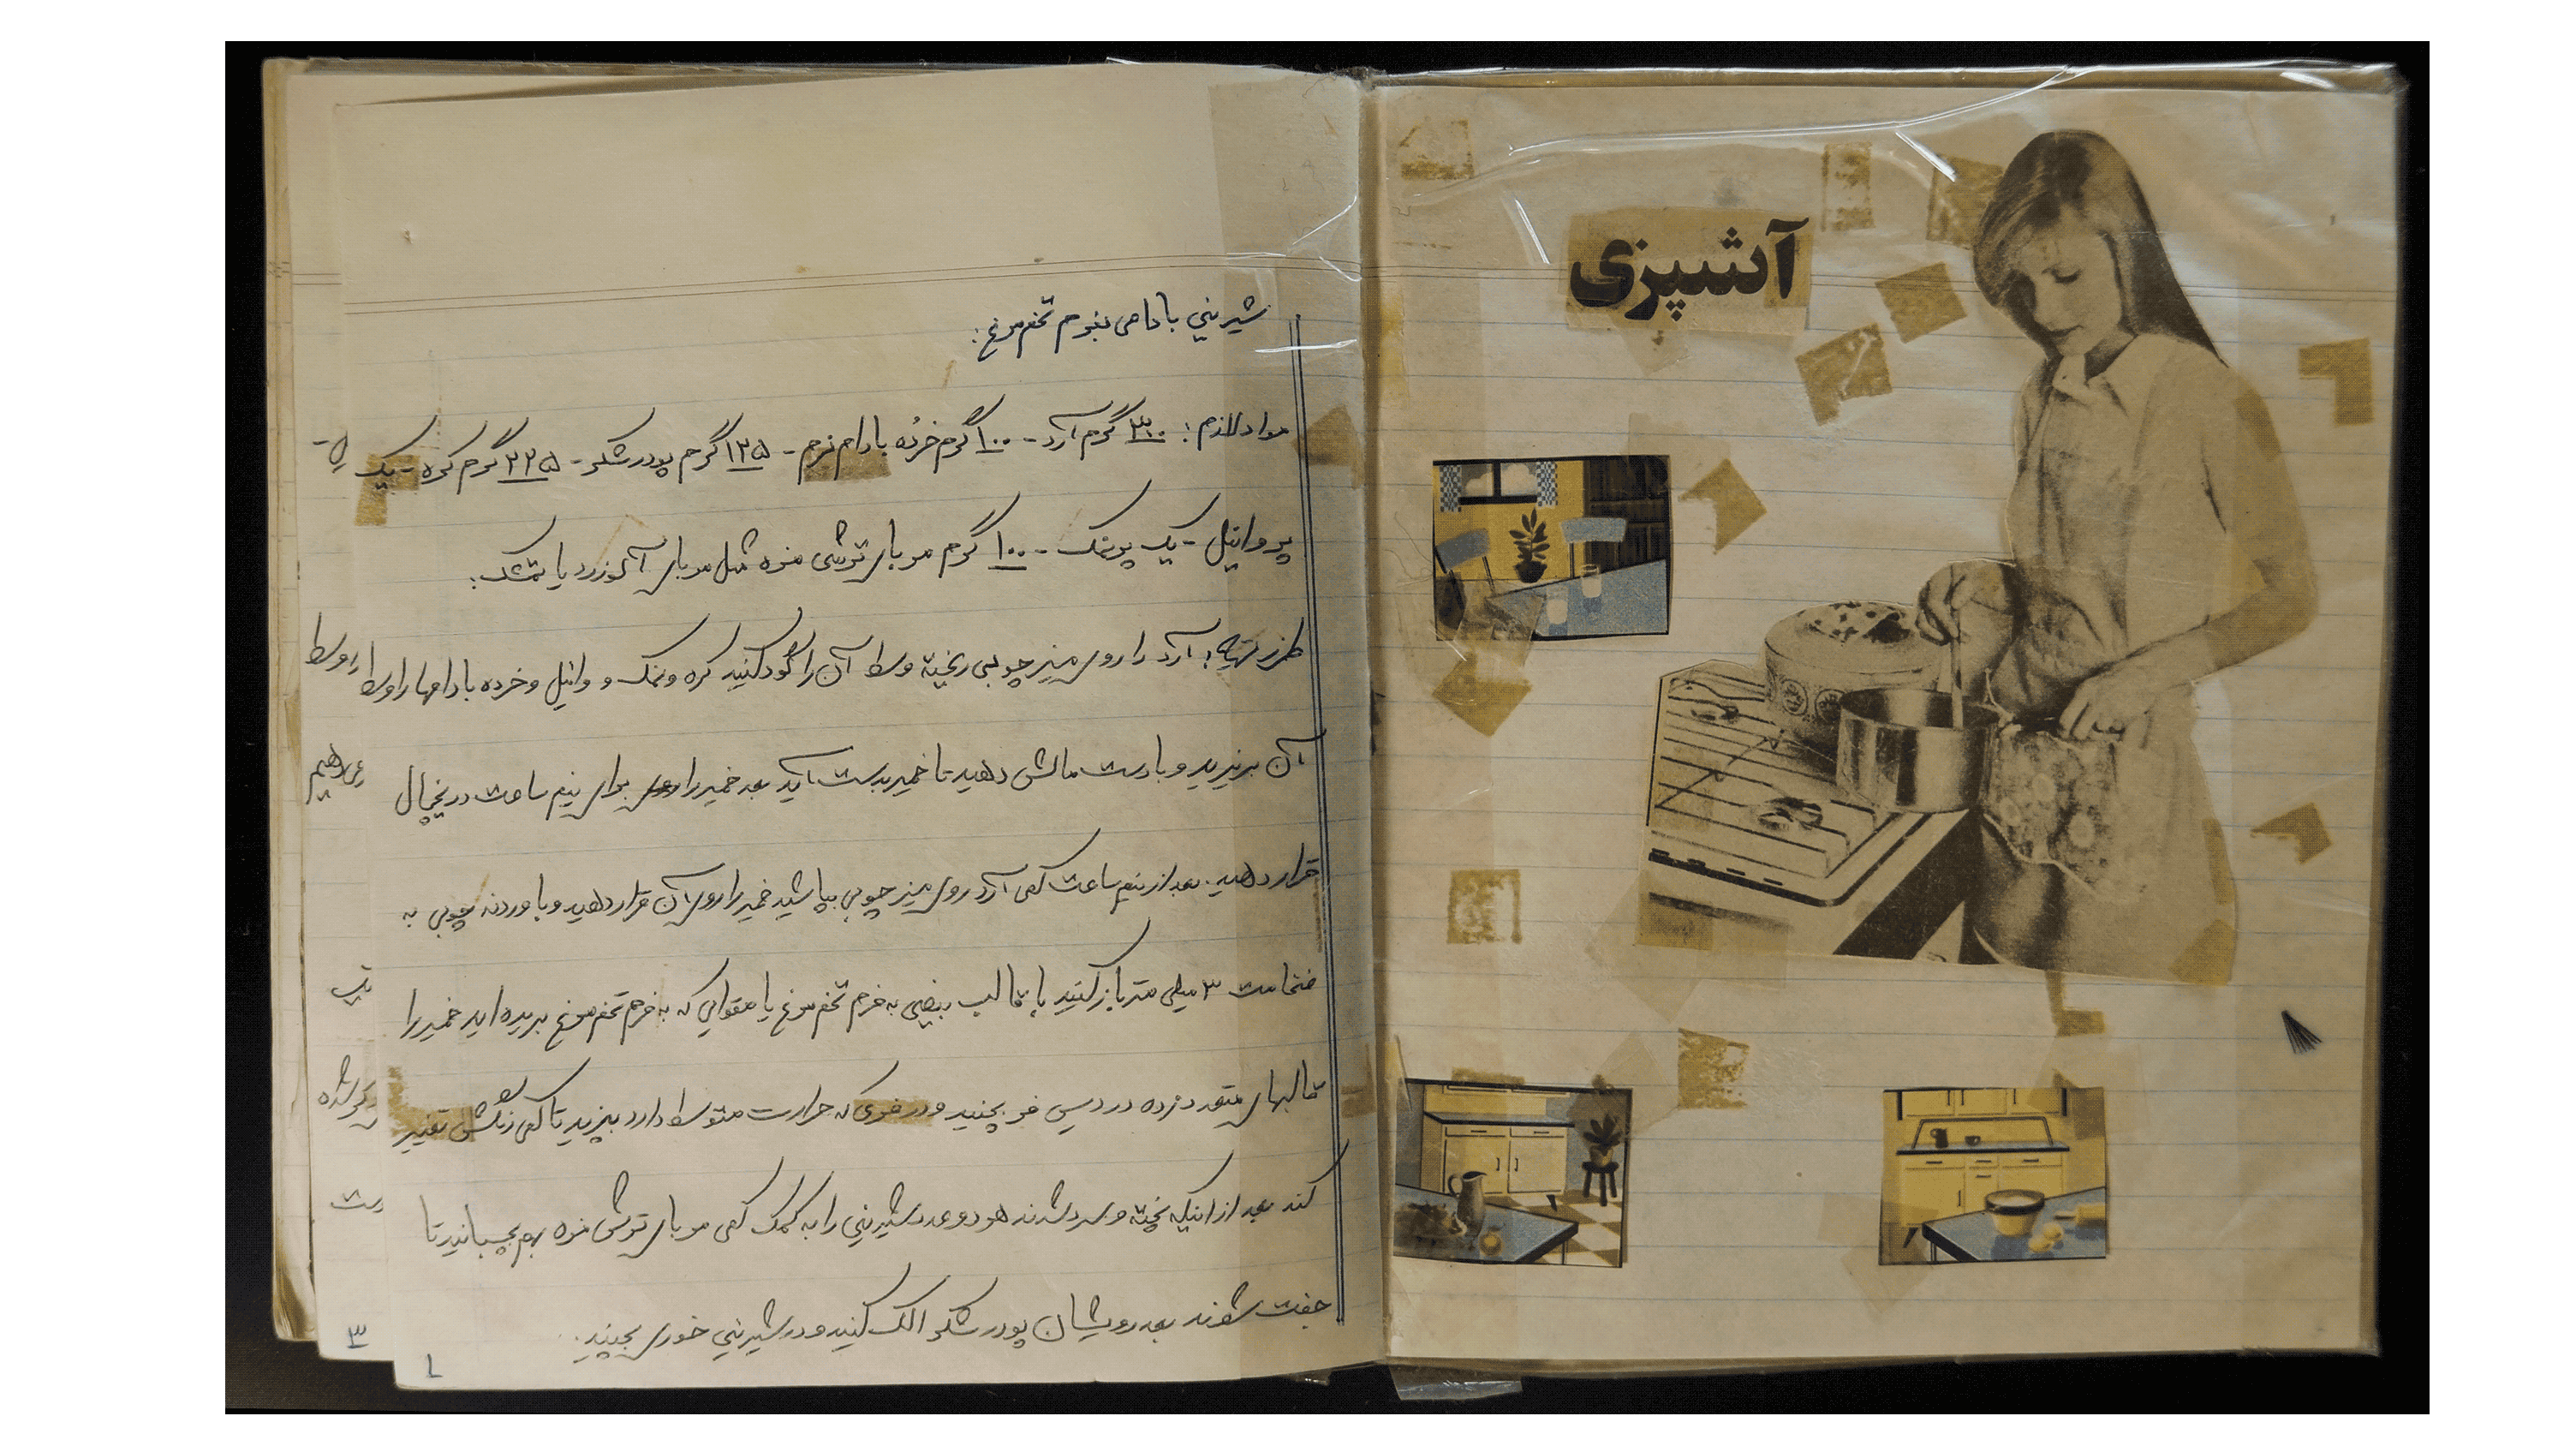 آشپزی
شیرینی بادامی بفرم تخم مرغ:
مواد لازم: ۳۱۰ گرم آرد - ۱۰۰ گرم خرده بادام نرم - ۱۲۵ گرم پودر شکر - ۲۲۵ گرم کره - یک
پر وانیل - یک پر نمک - ۱۰۰ گرم مربای ترش مزه مثل مربای آلوزرد یا تمشک:
طرز تهیه: آرد را روی میز چوبی ریخته وسط آن را گود کنید کره و نمک و وانیل و خرده بادامها را وسط
آن بریزید و با دست مالش دهید تا خمیر بدست آید بعد خمیر را برای نیم ساعت در یخچال
قرار دهید. بعد از نیم ساعت کمی آرد روی میز چوبی بپاشید خمیر را روی آن قرار دهید و با وردنه چوبی به
ضخامت ۳ میلی متر باز کنید با قالب بیضی به فرم تخم مرغ یا مقوایی که به فرم تخم مرغ بریده اید خمیر را
قالبهای متعدد زده در سینی فر بچینید و در فری که حرارت متوسط دارد بپزید تا کمی رنگش تغییر
کند بعد از اینکه پخته و سرد شدند هر دو عدد شیرینی را به کمک کمی مربای ترش مزه بهم بچسبانید تا
جفت شوند بعد رویشان پودر شکر الک کنید و در شیرینی خوری بچینید.
وسط
می دهیم
شده
۳
۱